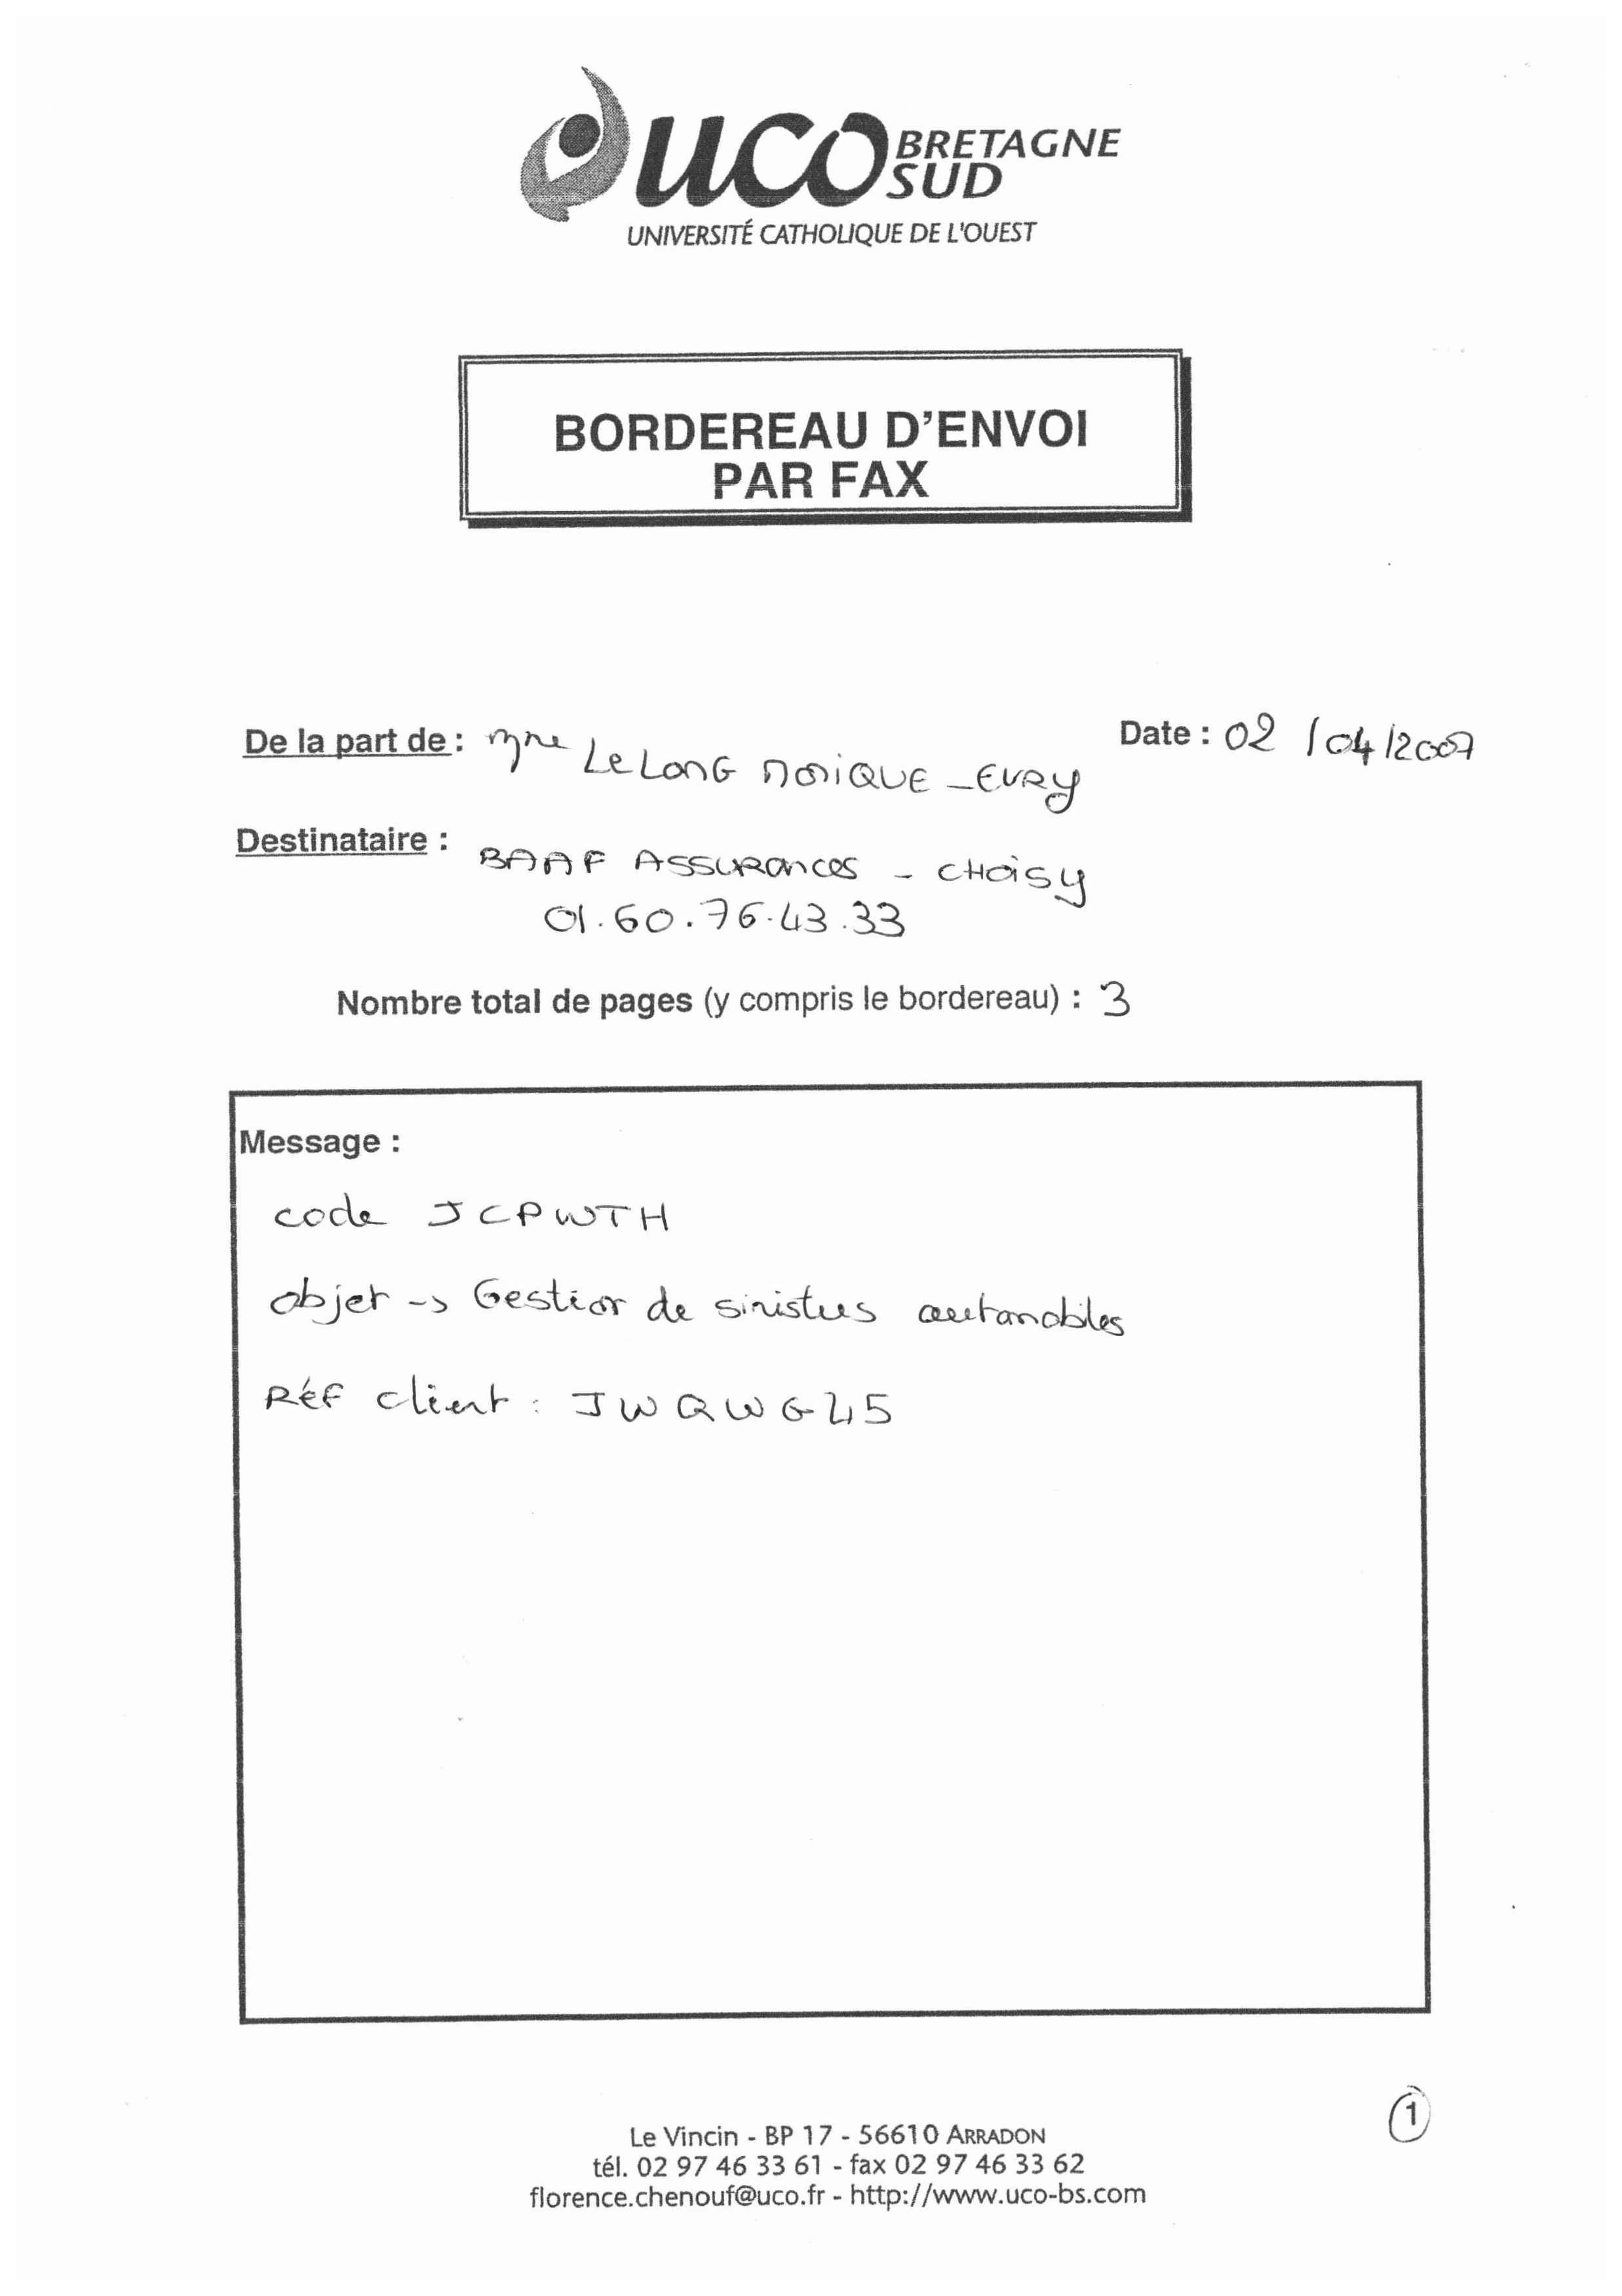 uco BRETAGNE
SUD
UNIVERSITÉ CATHOLIQUE DE L'OUEST
BORDEREAU D'ENVOI
PAR FAX
De la part de : Mme LeLONG MONIQUE - EVRY
Date : 02 / 04 / 2007
Destinataire : BAAF ASSURANCES - CHOISY
01.60.76.43.33
Nombre total de pages (y compris le bordereau) : 3
Message :
code JCPWTH
objet -> Gestion de sinistres automobiles
Réf client : JWQWG45
1
Le Vincin - BP 17 - 56610 ARRADON
tél. 02 97 46 33 61 - fax 02 97 46 33 62
florence.chenouf@uco.fr - http://www.uco-bs.com